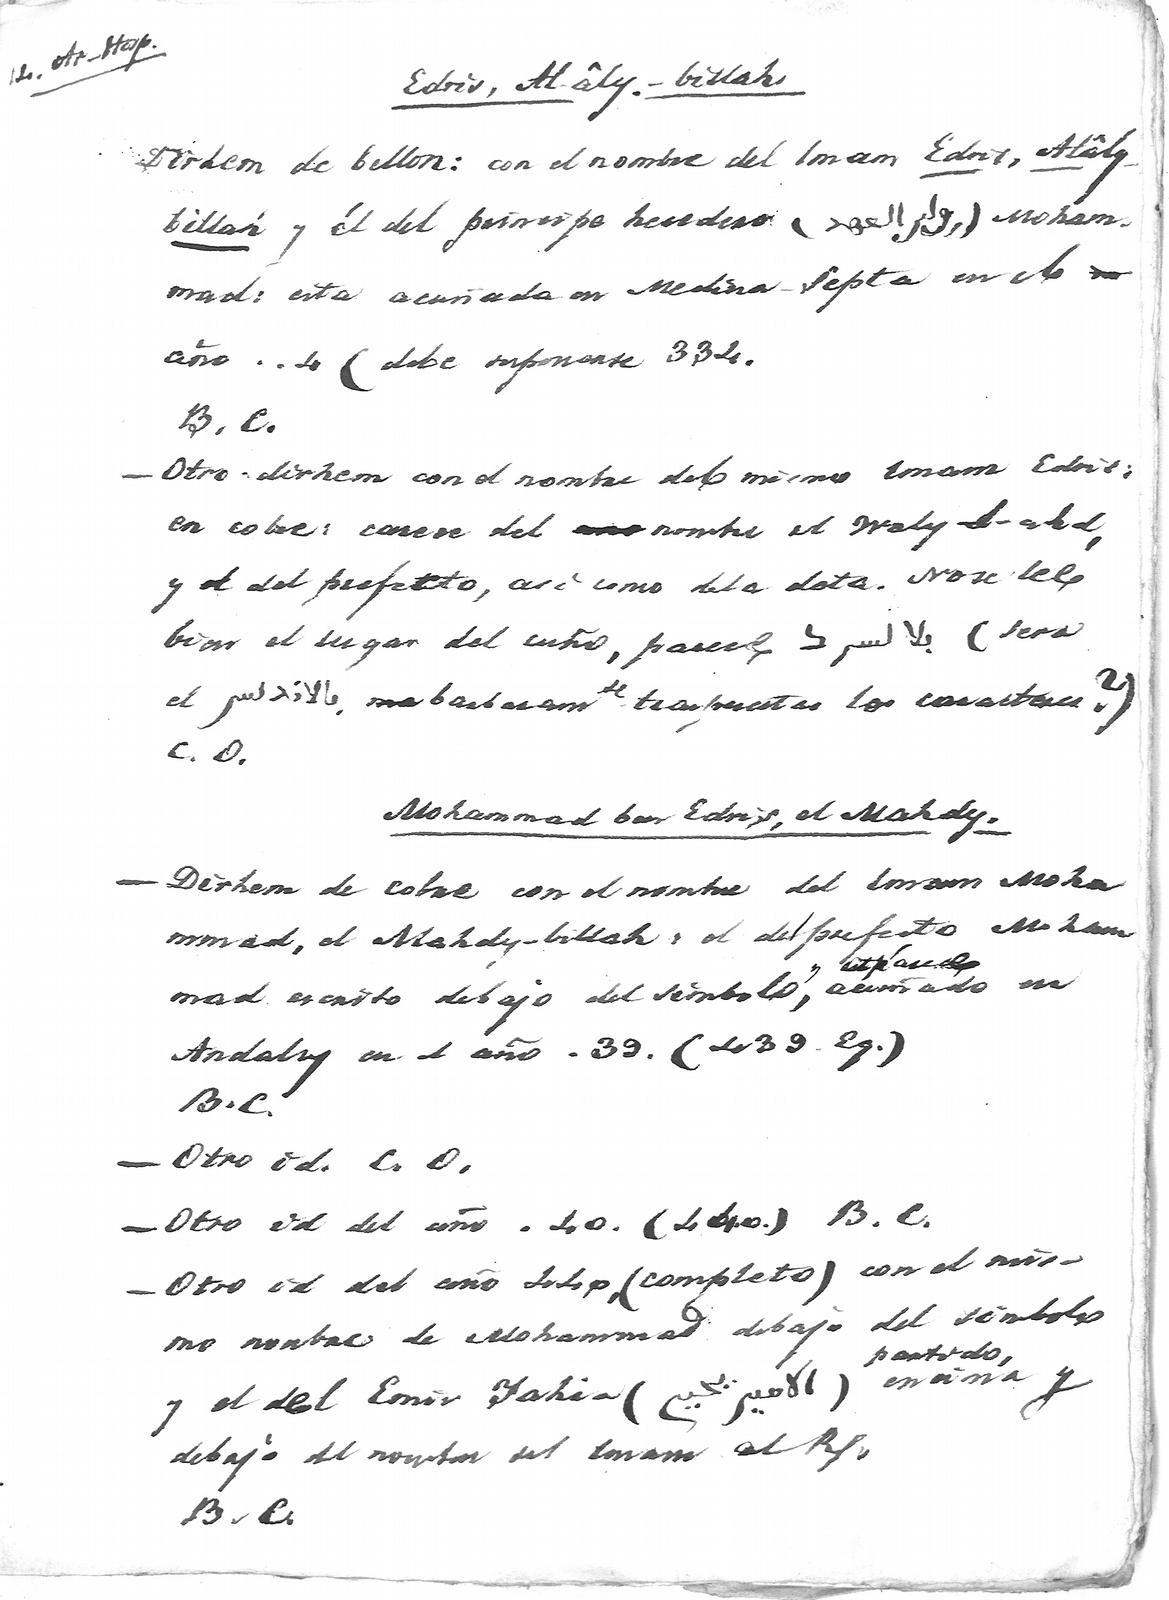 Ar-Hisp.
Edris, Al-âly.-billah
Dirhem de bellon: con el nombre del Imam Edris, Alâly-
billah y él del principe heredero (ولي العهد) Moham-
mad: esta acuñada en Medina-Septa en el
año . . 4 (debe suponerse 334.
B. C.
— Otro dirhem con el nombre del mismo Imam Edris:
en cobre: carece del nombre el Waly-l-ahd,
y el del prefecto, así como dela data. No se lee
bien el lugar del cuño, parece (sera
el بالاندلس, barbaram.te los caracteres?)
C. O.
Mohammad ben Edris, el Mahdy.
— Dirhem de cobre con el nombre del Imam Moha
mmad, el Mahdy-billah: el del prefecto Moham
mad escrito debajo del simbolo, acuñado en
Andalus en el año . 39. (439. Eg.)
B. C.
— Otro id. C. O.
— Otro id del año . 40. (440.) B. C.
— Otro id del año 444, (completo) con el mis-
mo nombre de Mohammad debajo del simbolo
y el del Emir Yahia (الامير يحيى) partido, encima y
debajo del nombre del Imam al Rs.
B. C.